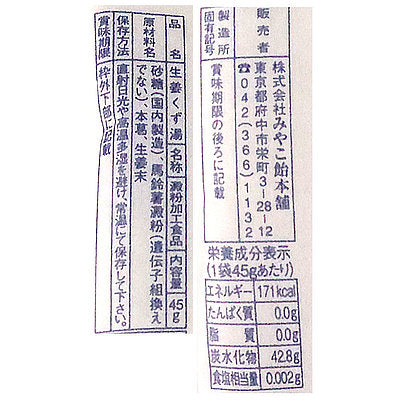 品名 生姜くず湯 名称 澱粉加工食品 内容量 45g
原材料名 砂糖(国内製造)、馬鈴薯澱粉(遺伝子組換え
でない)、本葛、生姜末
保存方法 直射日光や高温多湿を避け、常温にて保存して下さい。
賞味期限 枠外下部に記載
販売者 株式会社みやこ飴本舗
東京都府中市栄町3-28-12
☎042(366)1132
製造所固有記号 賞味期限の後ろに記載
栄養成分表示
(1袋45gあたり)
エネルギー 171kcal
たんぱく質 0.0g
脂質 0.0g
炭水化物 42.8g
食塩相当量 0.002g